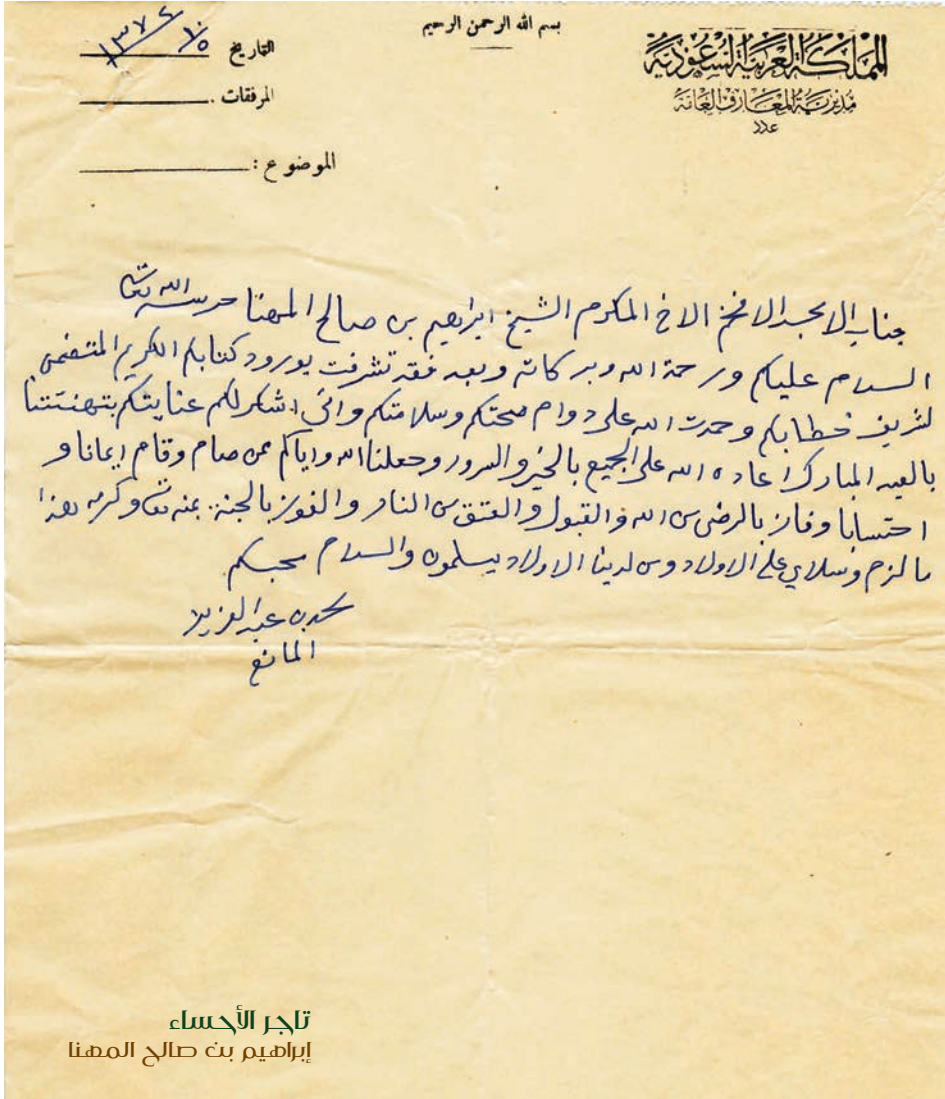 بسم الله الرحمن الرحيم
المملكة العربية السعودية
مديرية المعارف العامة
عدد
التاريخ ١٣٧٤/١٠/٥
المرفقات
الموضوع :
جناب الامجد الافخم الاخ المكرم الشيخ ابراهيم بن صالح المهنا حرسه الله تعالى
السلام عليكم ورحمة الله وبركاته وبعد فقد تشرفت بورود كتابكم الكريم المتضمن
لشريف خطابكم وحمدت الله على دوام صحتكم وسلامتكم واني اشكر لكم عنايتكم بتهنئتنا
بالعيد المبارك اعاده الله على الجميع بالخير والسرور وجعلنا الله واياكم ممن صام وقام ايمانا و
احتسابا وفاز بالرضى من الله والقبول والعتق من النار والفوز بالجنة بمنه تعالى وكرمه هذا
ما لزم وسلامي على الاولاد ومن لدينا الاولاد يسلمون والسلام محبكم
محمد بن عبد العزيز
المانع
تاجر الأحساء
إبراهيم بن صالح المهنا